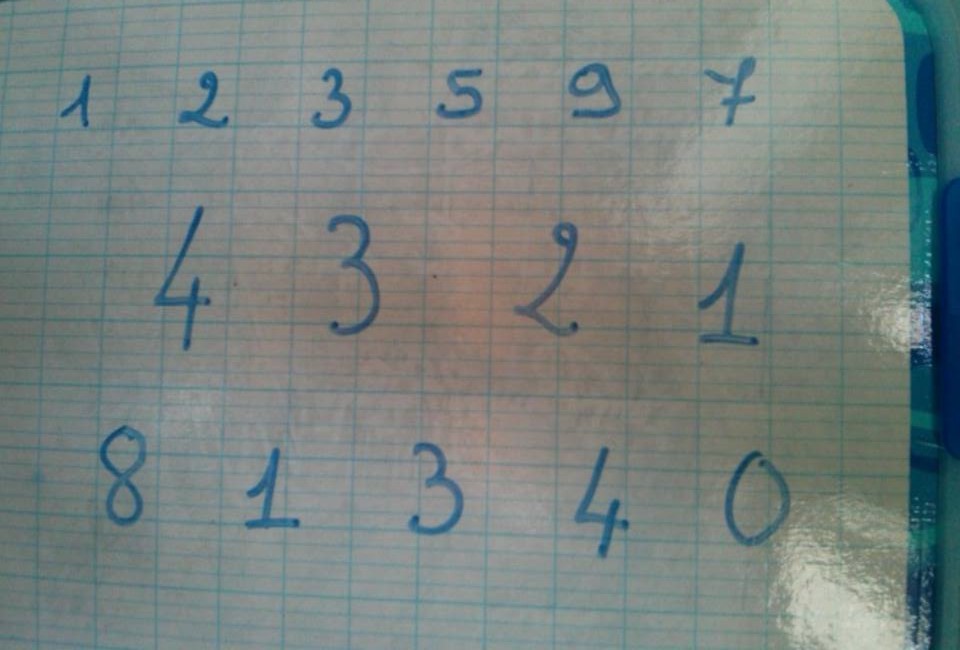 1 2 3 5 9 7
4 3 2 1
8 1 3 4 0